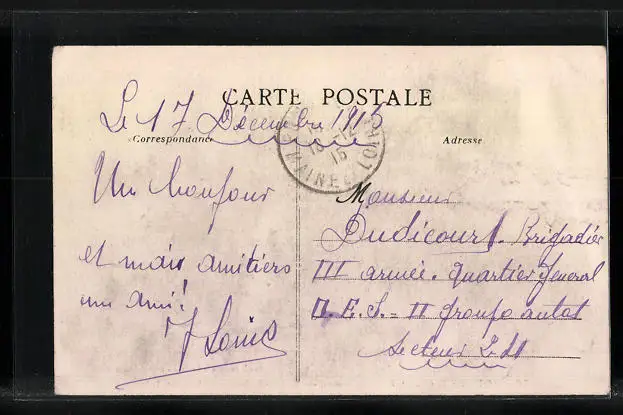 CARTE POSTALE
Le 17 Décembre 1915
Correspondance
Adresse
MAINE & LOIRE
15
Un bonjour
et mais amitiers
une ami!
Louis
Monsieur
Dudicourt. Brigadier
III armée. Quartier General
D. E. S. = II groupe autot
Secteur